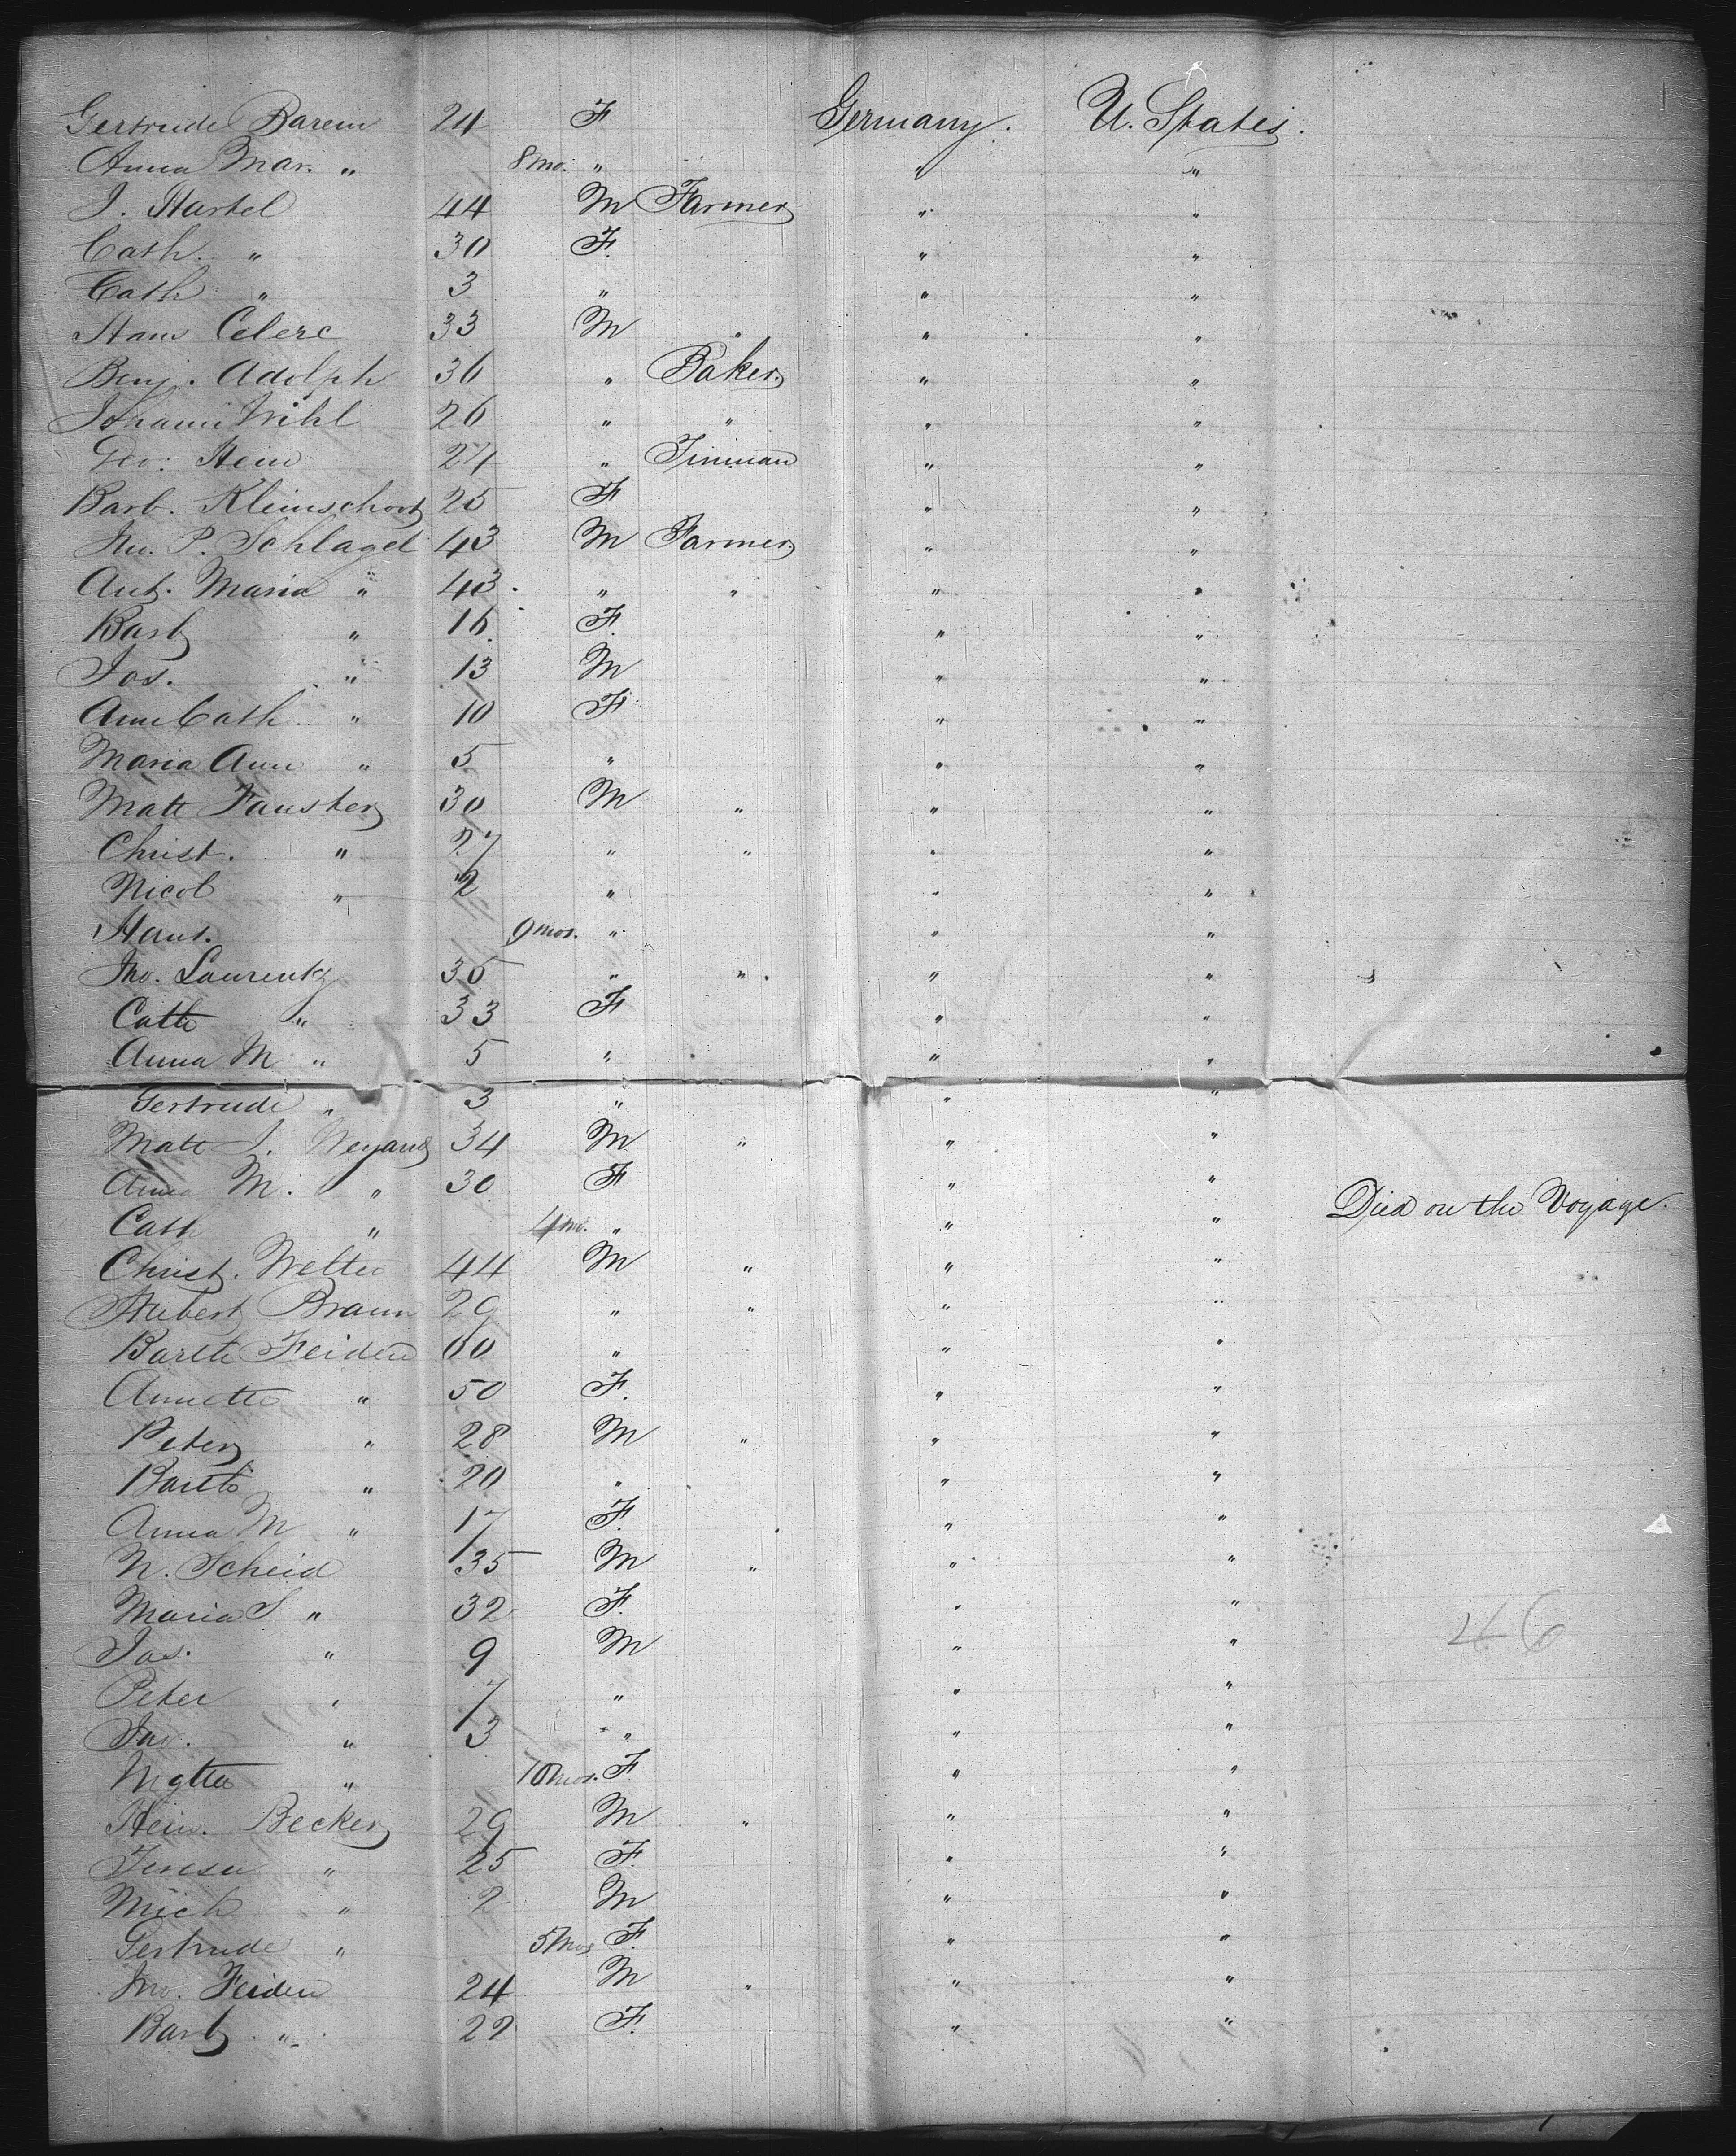 Gertrude Barein 24 F Germany. U. States.
Anna Mar. " 8 mo. " " "
J. Hartel 44 M Farmer " "
Cath. " 30 F. " "
Cath " 3 " " "
Hans Clerc 33 M " " "
Benj. Adolph 36 " Baker " "
Johann Wihl 26 " " " "
Geo: Hein 24 " Tinman " "
Barb. Kleinschort 25 F " "
P. Schlagel 43 M Farmer " "
Ant. Maria " 43 " " " "
Barb " 16 F. " "
Jos. " 13 M " "
Ann Cath. " 10 F " "
Maria Ann " 5 " " "
Matt Fauster 30 M " " "
Christ. " 27 " " " "
Nicol " 2 " " "
Hans. 9 mos. " " "
Jno. Laurentz 35 " " " "
Cath " 33 F " "
Anna M " 5 " " "
Gertrude " 3 " " "
Matt J. Weyand 34 M " " "
Anna M. " 30 F " "
Cath " 4 mo. " " " Died on the Voyage.
Christ. Welter 44 M " " "
Hubert Braun 29 " " " "
Barth Feiden 60 " " "
Annette " 50 F. " "
Peter " 28 M " " "
Barth " 20 " " "
Anna M " 17 F. " "
N. Scheid 35 M " " "
Maria S " 32 F. " "
Jas. " 9 M " "
Peter " 7 " " "
Jno. " 3 " " "
Mgtta " 10 mos. F " " 46
Hein. Becker 29 M " " "
Teresa " 25 F. " "
Mich " 2 M " "
Gertrude " 5 mos F. " "
Jno. Feiden 24 M " " "
Barb " 22 F. " "